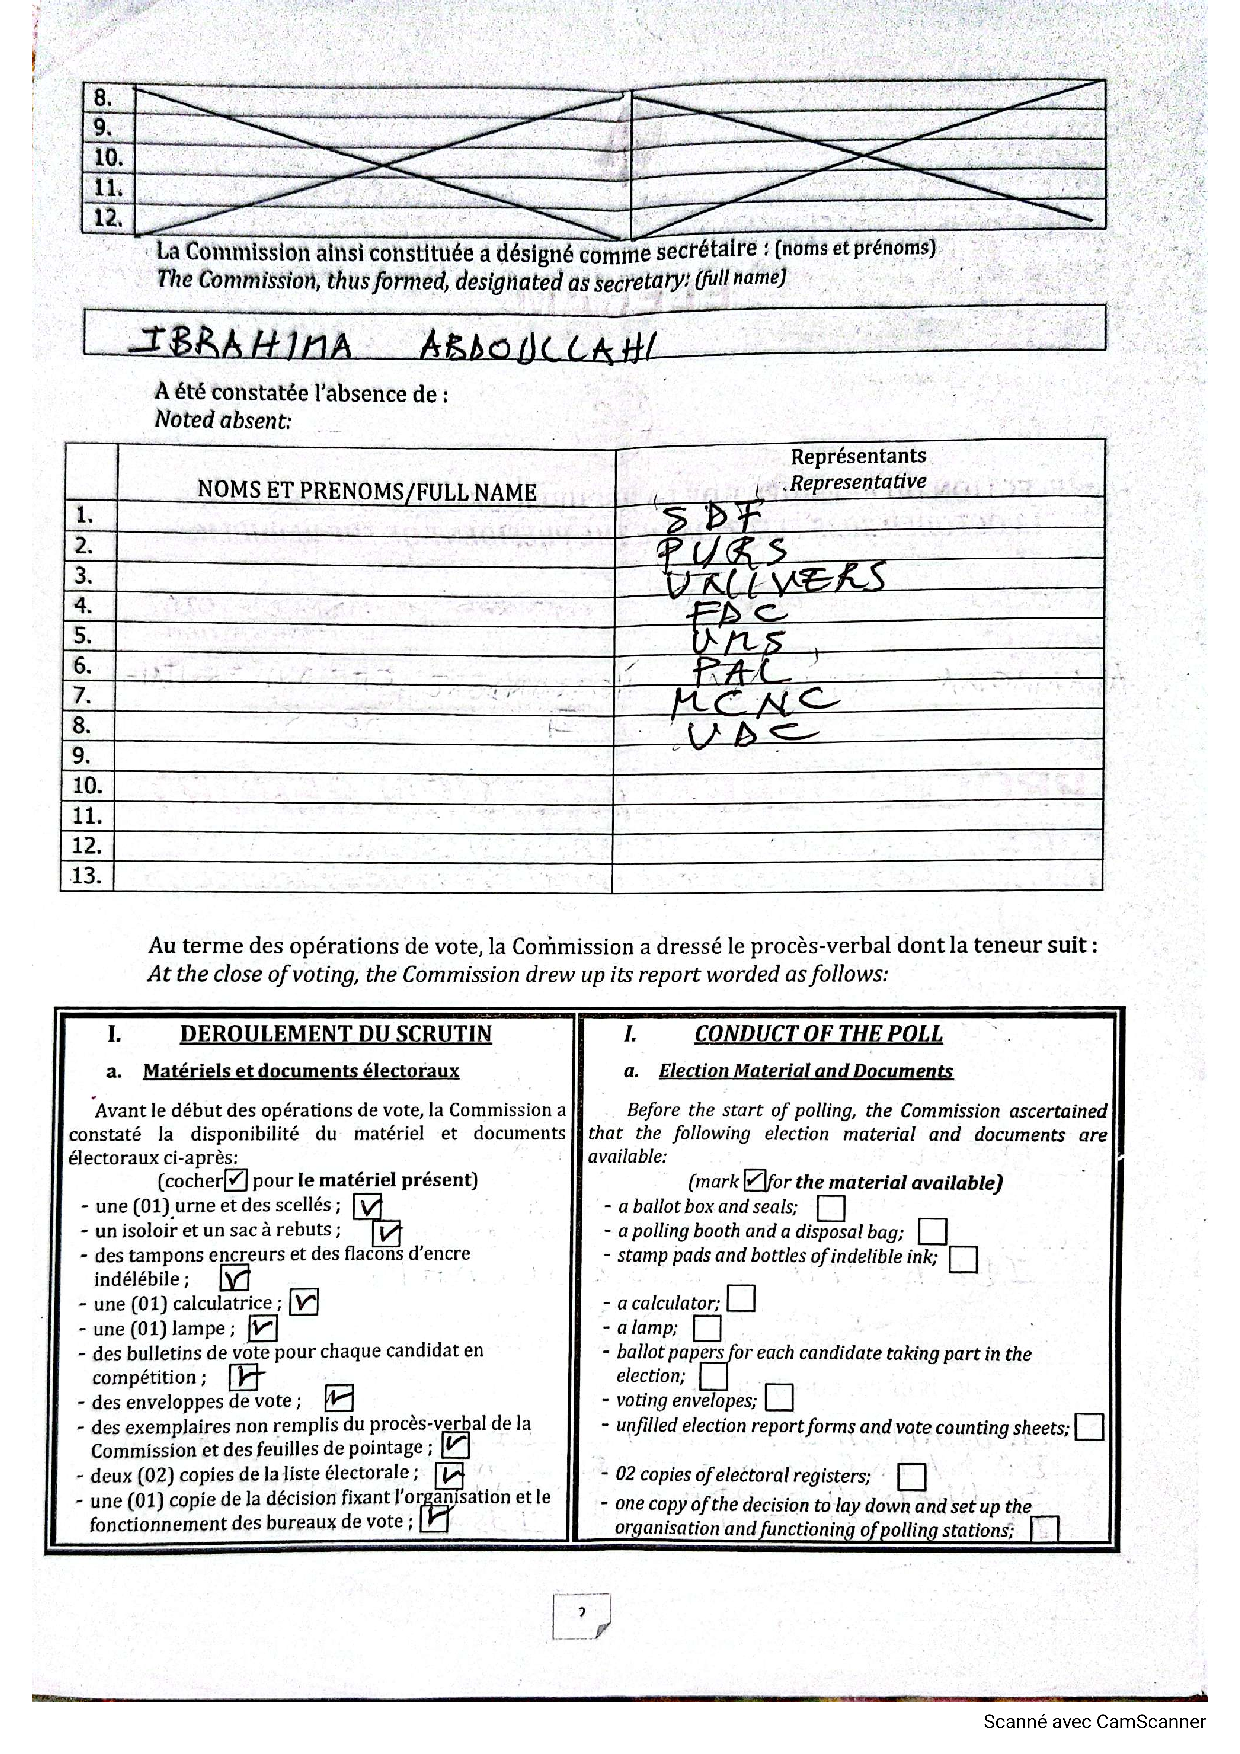 8.
9.
10.
11.
12.
La Commission ainsi constituée a désigné comme secrétaire : (noms et prénoms)
The Commission, thus formed, designated as secretary: (full name)
IBRAHIMA ABDOULLAHI
A été constatée l'absence de :
Noted absent:
NOMS ET PRENOMS/FULL NAME Représentants
Representative
1. SDF
2. PURS
3. UNIVERS
4. FDC
5. UMS
6. PAL
7. MCNC
8. UDC
9.
10.
11.
12.
13.
Au terme des opérations de vote, la Commission a dressé le procès-verbal dont la teneur suit :
At the close of voting, the Commission drew up its report worded as follows:
I. DEROULEMENT DU SCRUTIN
a. Matériels et documents électoraux
Avant le début des opérations de vote, la Commission a
constaté la disponibilité du matériel et documents
électoraux ci-après:
(cocher ☑ pour le matériel présent)
- une (01) urne et des scellés ; ☑
- un isoloir et un sac à rebuts ; ☑
- des tampons encreurs et des flacons d'encre
indélébile ; ☑
- une (01) calculatrice ; ☑
- une (01) lampe ; ☑
- des bulletins de vote pour chaque candidat en
compétition ; ☑
- des enveloppes de vote ; ☑
- des exemplaires non remplis du procès-verbal de la
Commission et des feuilles de pointage ; ☑
- deux (02) copies de la liste électorale ; ☑
- une (01) copie de la décision fixant l'organisation et le
fonctionnement des bureaux de vote ; ☑
I. CONDUCT OF THE POLL
a. Election Material and Documents
Before the start of polling, the Commission ascertained
that the following election material and documents are
available:
(mark ☑ for the material available)
- a ballot box and seals; ☐
- a polling booth and a disposal bag; ☐
- stamp pads and bottles of indelible ink; ☐
- a calculator; ☐
- a lamp; ☐
- ballot papers for each candidate taking part in the
election; ☐
- voting envelopes; ☐
- unfilled election report forms and vote counting sheets; ☐
- 02 copies of electoral registers; ☐
- one copy of the decision to lay down and set up the
organisation and functioning of polling stations; ☐
2
Scanné avec CamScanner